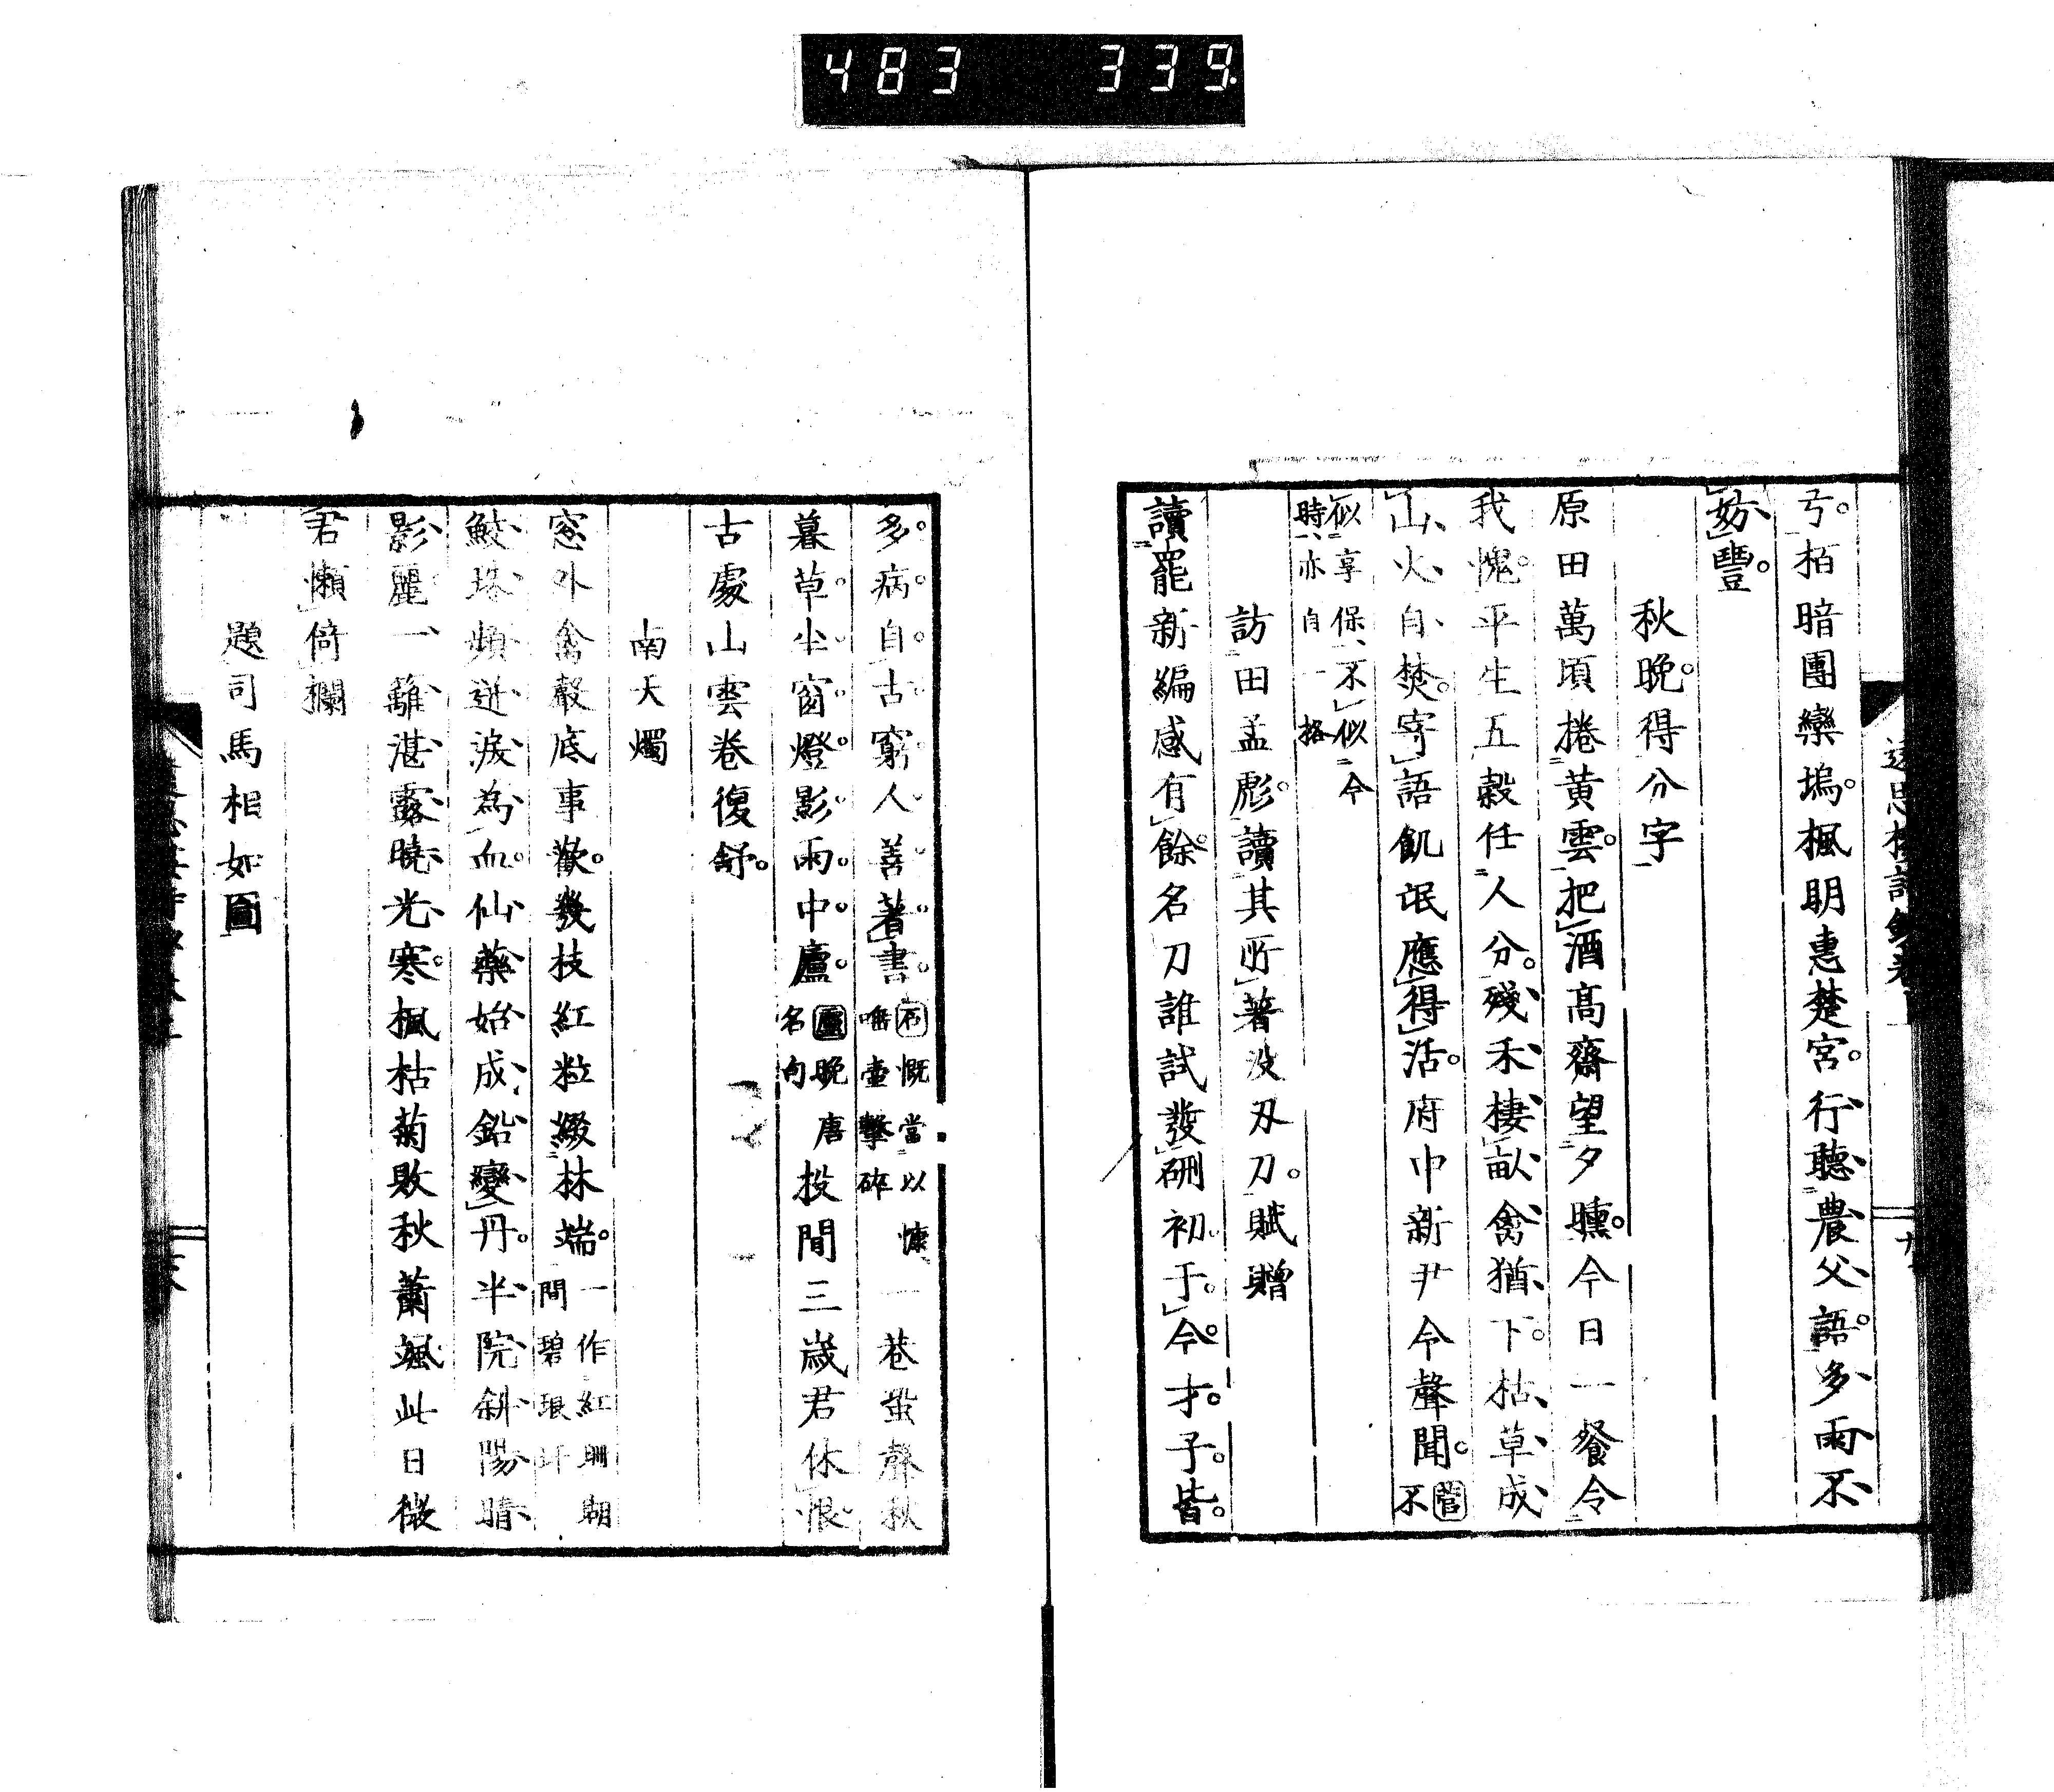 483 339
弓。栢暗團欒塢。楓明寒楚宮。行聽農父語。多雨不
妨豐。
秋晩。得分字
原田萬頃捲黃雲。把酒高齋望夕曛。今日一餐令
我愧。平生五穀任人分。殘禾棲畝禽猶下。枯草成
山火自焚。寄語飢氓應得活。府中新尹令聲聞。
菅不似享保、不似今時、亦自一格
訪田孟彪。讀其所著沒刃刀。賦贈
讀罷新編感有餘。名刀誰試發硎初。于今才子皆
多病。自古窮人善著書。
慨當以慷唾壺擊碎
一巷蛩聲秋
暮草。半窗燈影雨中廬。
廬晚唐名句
投閒三歲君休恨。
古處山雲卷復舒。
南天燭
窓外禽聲底事歡。幾枝紅粒綴林端。
一作紅珊瑚間碧琅玕
鮫珠頻迸淚為血。仙藥始成鉛變丹。半院斜陽晴
影麗。一籬湛露曉光寒。楓枯菊敗秋蕭颯此日微
君懶倚欄
題司馬相如圖